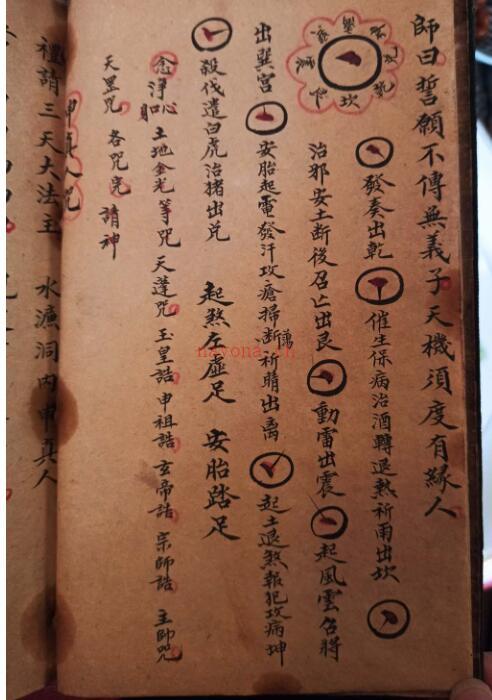 師曰誓願不傳無義子天機須度有緣人
坎
震
發奏出乾
催生保病治酒轉退熱祈雨出坎
治邪安土断後召亡出艮
動雷出震
起風雲召将
出巽宮
安胎起電發汗攻瘡掃断祈晴出离
起土退煞報犯攻病坤
殺伐遣白虎治猪出兑
起煞左虚足 安胎踏足
念淨心口 土地金光等咒 天蓬咒 玉皇誥 申祖誥 玄帝誥 宗師誥 主帥咒
天罡咒 各咒完 請神
申真人咒
禮請三天大法主 水濂洞内申真人
nayona.cn